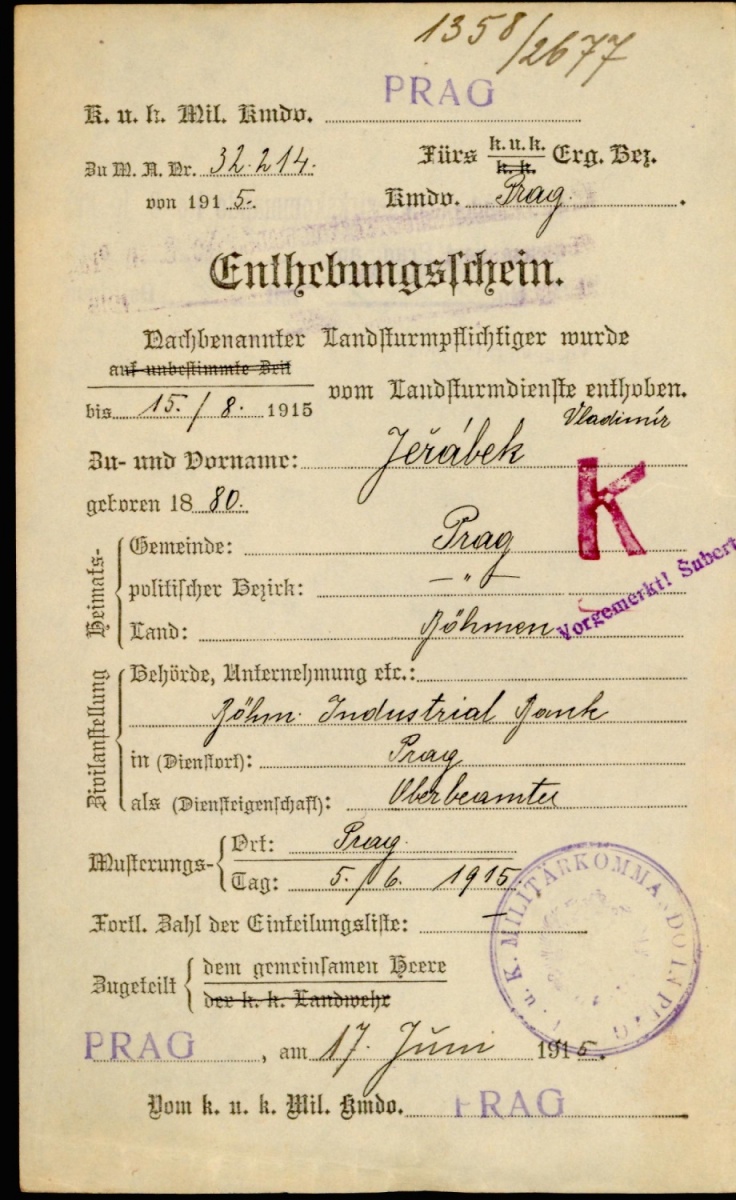 1358/2677
K. u. k. Mil. Kmdo. PRAG
Zu M. A. Nr. 32.214.
von 1915.
Fürs k. u. k. Erg. Bez.
k. k.
Kmdo. Prag.
Enthebungsschein.
Nachbenannter Landsturmpflichtiger wurde
auf unbestimmte Zeit
bis 15./8. 1915 vom Landsturmdienste enthoben.
Zu- und Vorname: Jeřábek Vladimír
geboren 1880.
K
Heimats-
Gemeinde: Prag
politischer Bezirk: — " —
Land: Böhmen
Vorgemerkt! Šubert
Zivilanstellung
Behörde, Unternehmung etc.:
Böhm. Industrial Bank
in (Dienstort): Prag
als (Diensteigenschaft): Oberbeamter
Musterungs-
Ort: Prag.
Tag: 5./6. 1915.
Fortl. Zahl der Einteilungsliste: —
Zugeteilt
dem gemeinsamen Heere
der k. k. Landwehr
K. u. K. MILITÄRKOMMANDO IN PRAG
PRAG, am 17. Juni 1915.
Vom k. u. k. Mil. Kmdo. PRAG